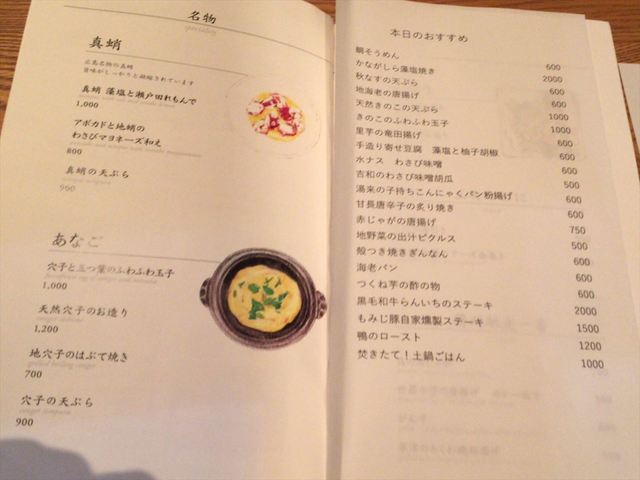 名物
speciality
真蛸
広島名物の真蛸
旨味がしっかりと凝縮されています
真蛸 藻塩と瀬戸田れもんで
1,000
アボカドと地蛸の
わさびマヨネーズ和え
800
真蛸の天ぷら
900
あなご
穴子と三つ葉のふわふわ玉子
1,000
天然穴子のお造り
1,200
地穴子のはぶて焼き
700
穴子の天ぷら
900
本日のおすすめ
鯛そうめん 600
かながしら藻塩焼き 2000
秋なすの天ぷら 600
地海老の唐揚げ 600
天然きのこの天ぷら 1000
きのこのふわふわ玉子 1000
里芋の竜田揚げ 600
手造り寄せ豆腐 藻塩と柚子胡椒 600
水ナス わさび味噌 600
吉和のわさび味噌胡瓜 500
湯来の子持ちこんにゃくパン粉揚げ 600
甘長唐辛子の炙り焼き 600
赤じゃがの唐揚げ 750
地野菜の出汁ピクルス 500
殻つき焼きぎんなん 600
海老パン 600
つくね芋の酢の物 600
黒毛和牛らんいちのステーキ 2000
もみじ豚自家燻製ステーキ 1500
鴨のロースト 1200
焚きたて！土鍋ごはん 1000